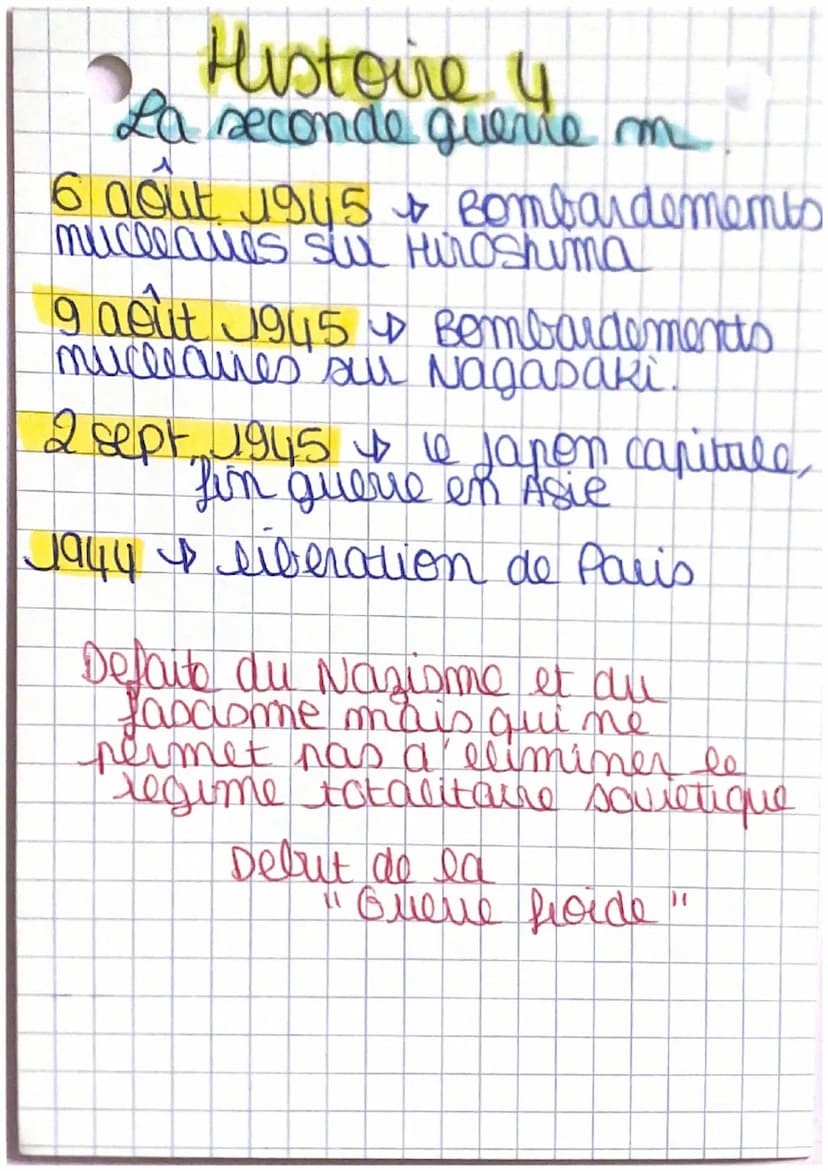 Histoire 4
La seconde guerre m.
6 août 1945 → Bombardements
nucléaires sur Hiroshima
9 août 1945 → Bombardements
nucléaires sur Nagasaki.
2 sept. 1945 → le Japon capitule,
fin guerre en Asie
1944 → liberation de Paris
Defaite du Nazisme et du
fascisme mais qui ne
permet pas d'eliminer le
regime totalitaire sovietique
Debut de la
"Guerre froide"